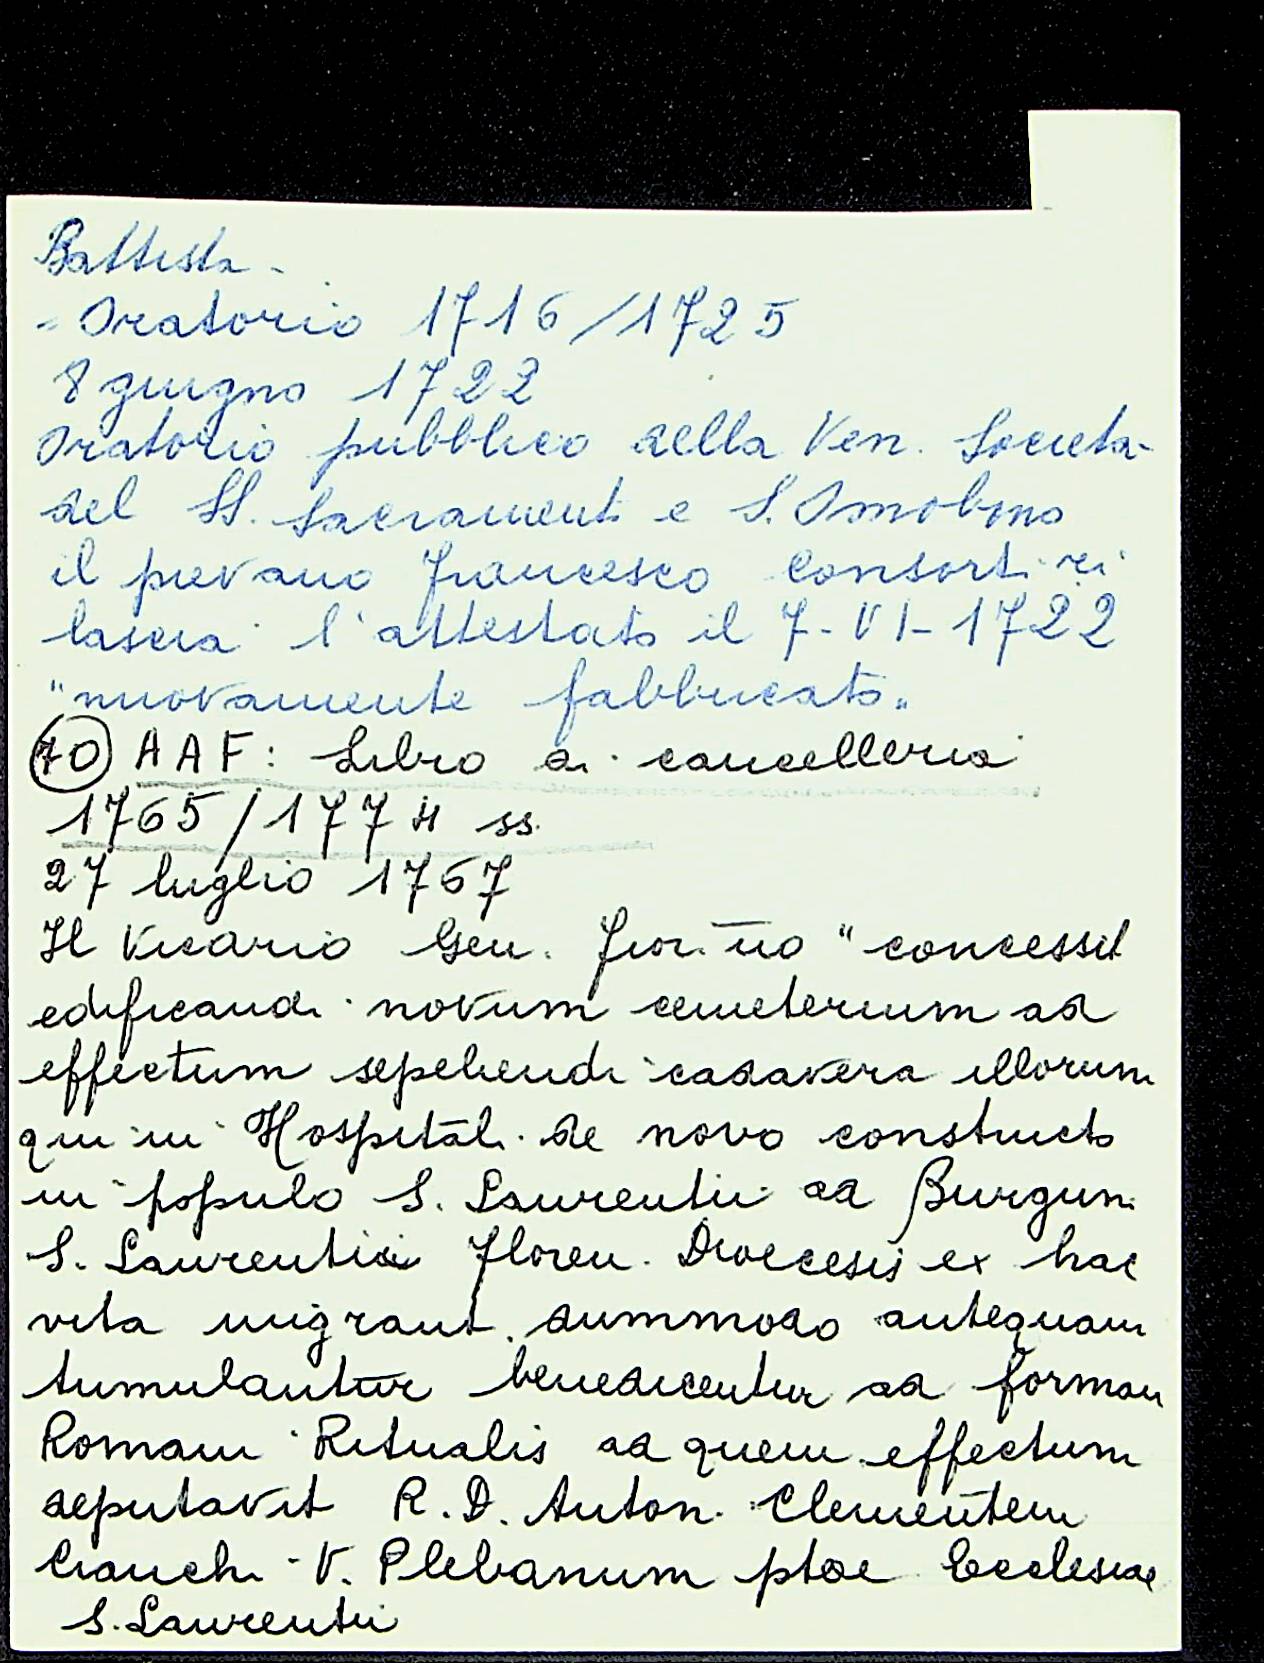 Battista -
- Oratorio 1716/1725
8 giugno 1722
Oratorio pubblico della Ven. Società
del SS. Sacramento e S. Omobono
il pievano Francesco Consorti vi
lascia l'attestato il 7-VI-1722
"nuovamente fabbricato"
70 AAF: Libro di cancelleria
1765/1774 ss.
27 luglio 1767
Il Vicario Gen. fior.no "concessit
edificandi novum cemeterium ad
effectum sepeliendi cadavera illorum
qui in Hospitali de novo constructo
in populo S. Laurentii ad Burgum
S. Laurentii Floren. Dioecesis ex hac
vita migrant dummodo antequam
tumulantur benedicentur ad formam
Romani Ritualis ad quem effectum
deputavit R.D. Anton. Clementem
Cianchi V. Plebanum ptae Ecclesiae
S. Laurentii